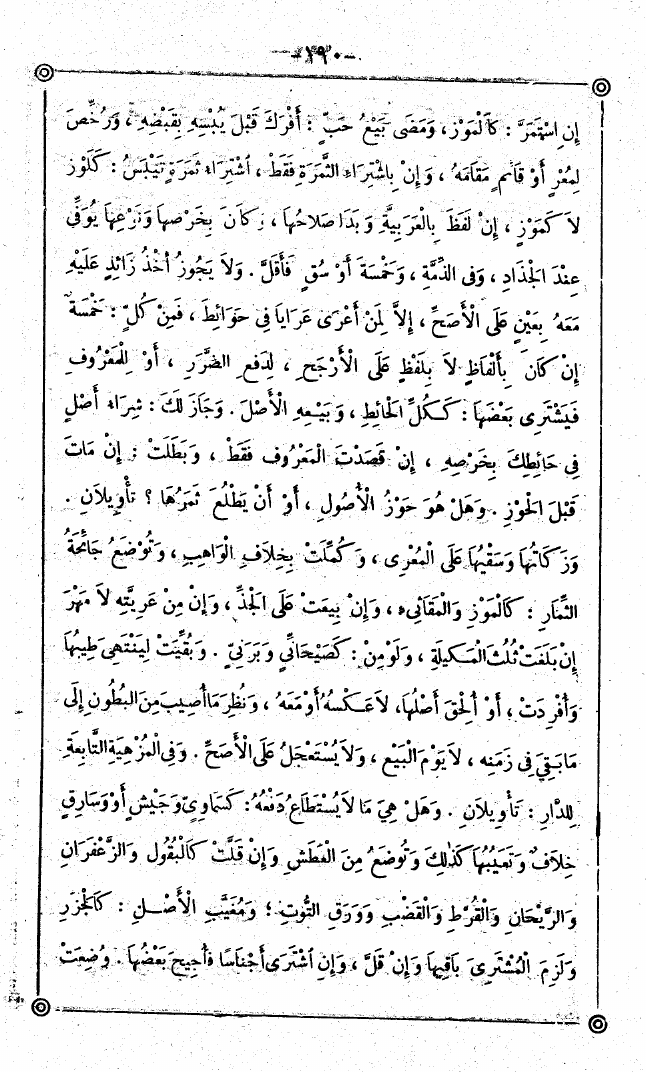 -١٩٠-
إِنِ اسْتَمَرَّ : كَالْمَوْزِ ، وَمَضَى بَيْعُ حَبٍّ : أَفْرَكَ قَبْلَ يُبْسِهِ بِقَبْضِهِ ، وَرُخِّصَ
لِمُعْرٍ أَوْ قَائِمٍ مَقَامَهُ ، وَإِنْ بِاشْتِرَاءِ الثَّمَرَةِ فَقَطْ ، اشْتِرَاءُ ثَمَرَةٍ تَيْبَسُ : كَلَوْزٍ
لاَ كَمَوْزٍ ، إِنْ لَفَظَ بِالْعَرِيَّةِ وَبَدَا صَلاَحُهَا ، وَكَانَ بِخَرْصِهَا وَنَوْعِهَا يُوَفِّي
عِنْدَ الْجَذَاذِ ، وَفِي الذِّمَّةِ ، وَخَمْسَةَ أَوْسُقٍ فَأَقَلَّ . وَلاَ يَجُوزُ أَخْذُ زَائِدٍ عَلَيْهِ
مَعَهُ بِعَيْنٍ عَلَى الْأَصَحِّ ، إِلاَّ لِمَنْ أَعْرَى عَرَايَا فِي حَوَائِطَ ، فَمِنْ كُلٍّ : خَمْسَةٌ
إِنْ كَانَ بِأَلْفَاظٍ لاَ بِلَفْظٍ عَلَى الْأَرْجَحِ ، لِدَفْعِ الضَّرَرِ ، أَوْ لِلْمَعْرُوفِ
فَيَشْتَرِي بَعْضَهَا : كَكُلِّ الْحَائِطِ ، وَبَيْعِهِ الْأَصْلَ . وَجَازَ لَكَ : شِرَاءُ أَصْلٍ
فِي حَائِطِكَ بِخَرْصِهِ ، إِنْ قَصَدْتَ الْمَعْرُوفَ فَقَطْ ، وَبَطَلَتْ : إِنْ مَاتَ
قَبْلَ الْحَوْزِ . وَهَلْ هُوَ حَوْزُ الْأُصُولِ ، أَوْ أَنْ يَطْلُعَ ثَمَرُهَا ؟ تَأْوِيلاَنِ .
وَزَكَاتُهَا وَسَقْيُهَا عَلَى الْمُعْرِي ، وَكُمِّلَتْ بِخِلاَفِ الْوَاهِبِ ، وَتُوضَعُ جَائِحَةُ
الثِّمَارِ : كَالْمَوْزِ وَالْمَقَاثِىءِ ، وَإِنْ بِيعَتْ عَلَى الْجَذِّ ، وَإِنْ مِنْ عَرِيَّتِهِ لاَ مَهْرَ
إِنْ بَلَغَتْ ثُلُثَ الْمَكِيلَةِ ، وَلَوْ مِنْ : كَصَيْحَانِيٍّ وَبَرْنِيٍّ . وَبُقِّيَتْ لِيَنْتَهِيَ طِيبُهَا
وَأُفْرِدَتْ ، أَوْ أُلْحِقَ أَصْلُهَا، لاَ عَكْسُهُ أَوْ مَعَهُ ، وَنُظِرَ مَا أُصِيبَ مِنَ الْبُطُونِ إِلَى
مَا بَقِيَ فِي زَمَنِهِ ، لاَ يَوْمَ الْبَيْعِ ، وَلاَ يُسْتَعْجَلُ عَلَى الْأَصَحِّ . وَفِي الْمُزْهِيَةِ التَّابِعَةِ
لِلدَّارِ : تَأْوِيلاَنِ . وَهَلْ هِيَ مَا لاَ يُسْتَطَاعُ دَفْعُهُ : كَسَمَاوِيٍّ وَجَيْشٍ أَوْ وَسَارِقٍ
خِلاَفٌ وَتَعْيِيبُهَا كَذٰلِكَ وَتُوضَعُ مِنَ الْعَطَشِ وَإِنْ قَلَّتْ كَالْبُقُولِ وَالزَّعْفَرَانِ
وَالرَّيْحَانِ وَالْقُرْطِ وَالْقَضْبِ وَوَرَقِ التُّوتِ ؛ وَمُغَيَّبِ الْأَصْلِ : كَالْجَزَرِ
وَلَزِمَ الْمُشْتَرِيَ بَاقِيهَا وَإِنْ قَلَّ ، وَإِنِ اشْتَرَى أَجْنَاسًا فَأُجِيحَ بَعْضُهَا . وُضِعَتْ